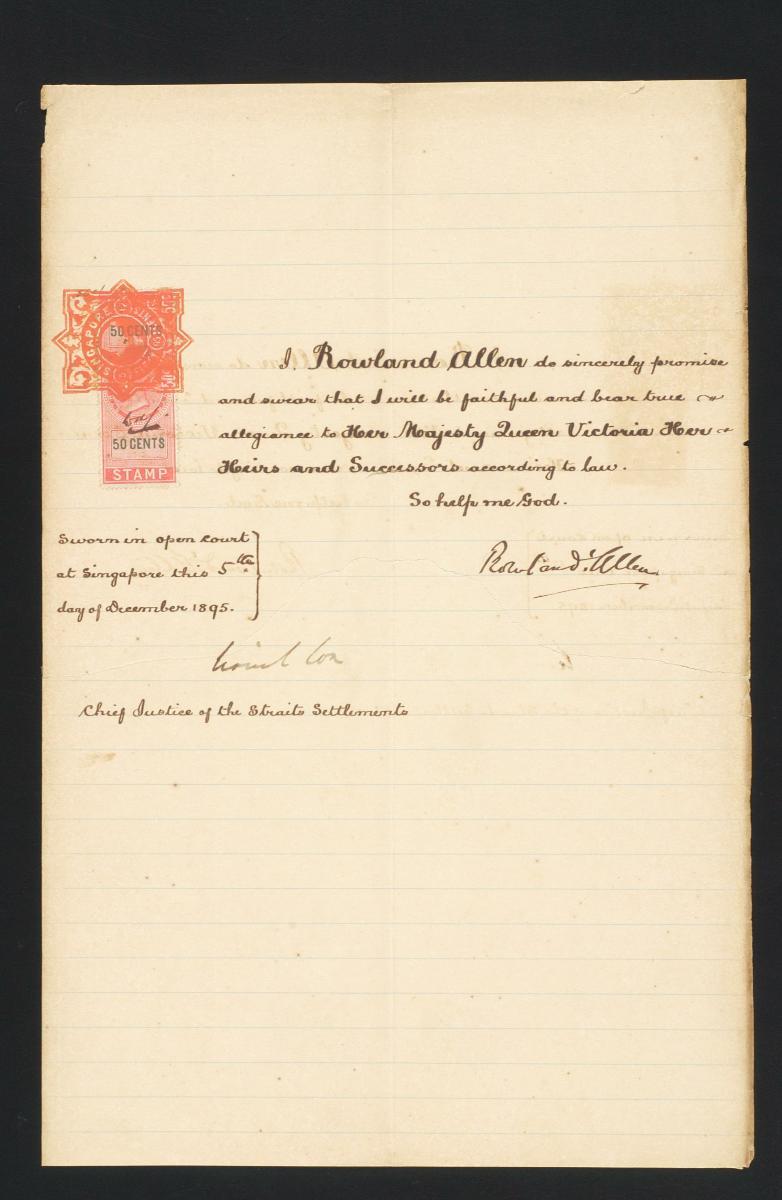 SINGAPORE SINGAPORE
50 CENTS
50 CENTS
STAMP
I, Rowland Allen do sincerely promise
and swear that I will be faithful and bear true
allegiance to Her Majesty Queen Victoria Her
Heirs and Successors according to law.
So help me God.
Sworn in open court
at Singapore this 5th
day of December 1895.
Rowland Allen
Cox
Chief Justice of the Straits Settlements